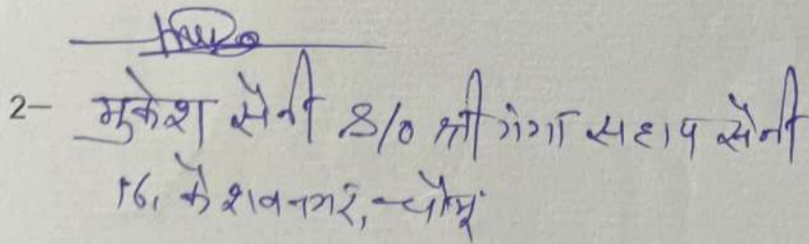 2- मुकेश सैनी S/o श्री गंगा सहाय सैनी
16, केशवनगर, चौमूं